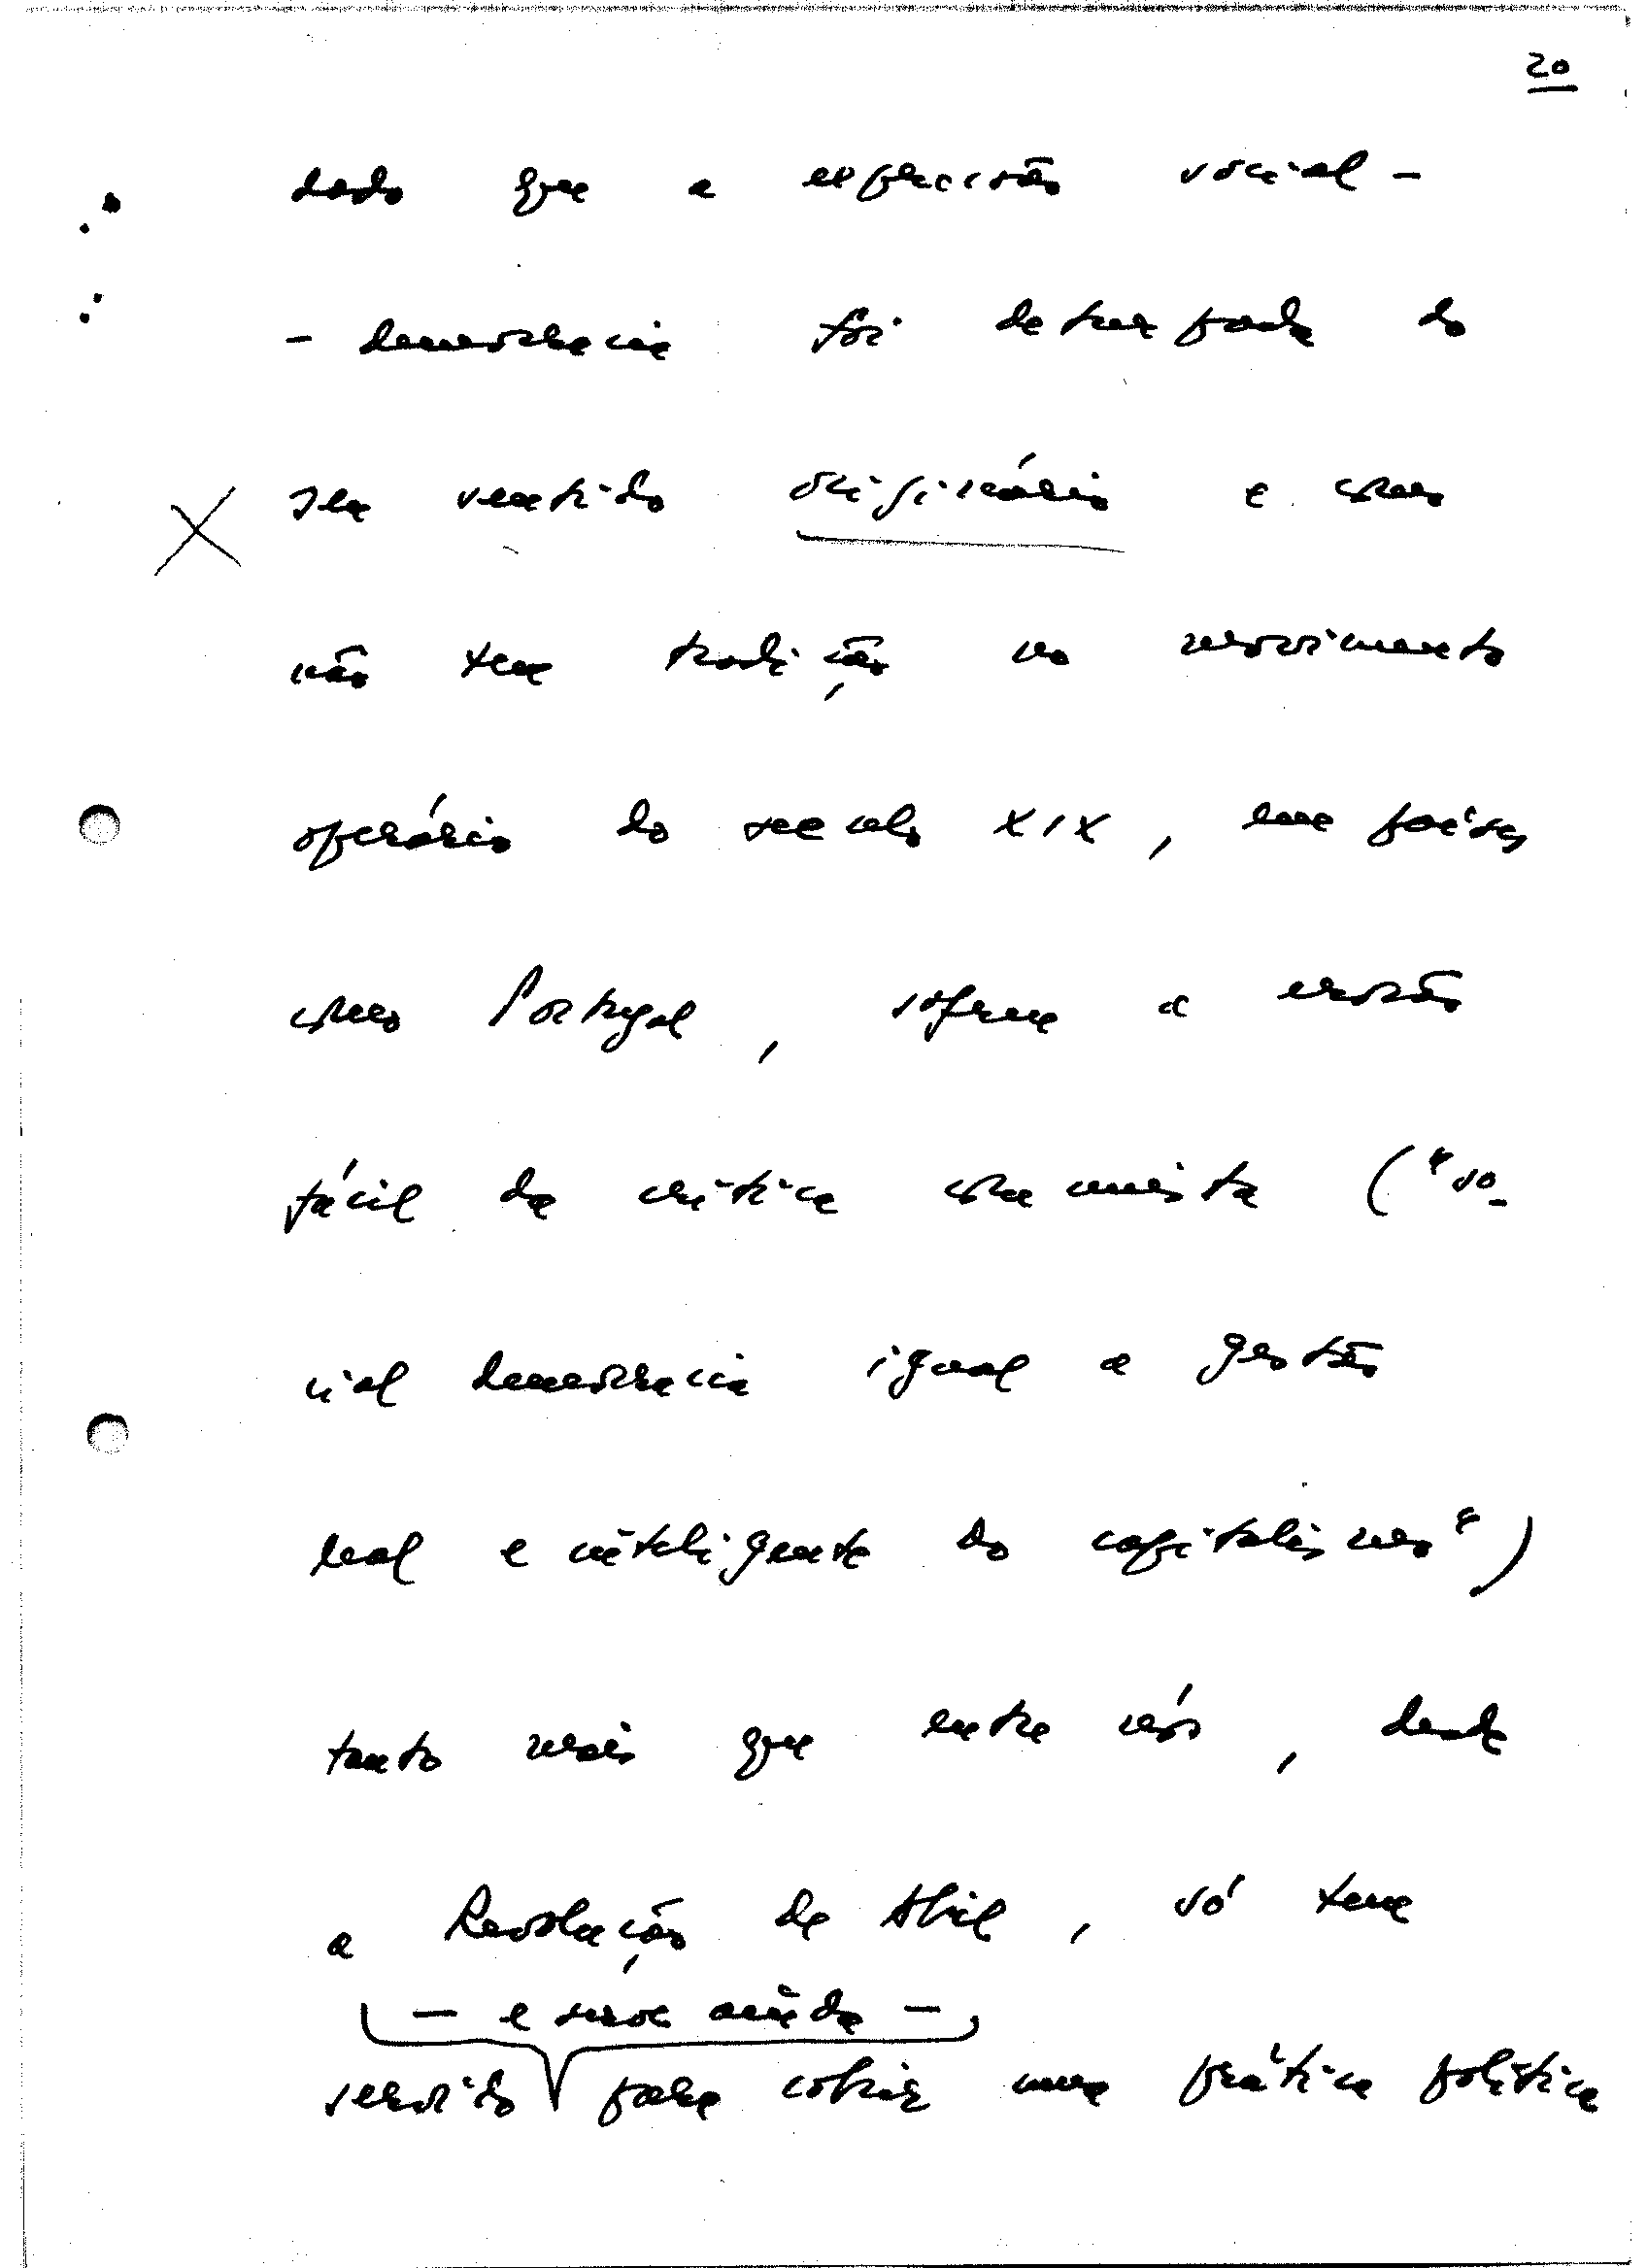 20
dado que a expressão social-
- democracia foi deturpada do
seu sentido originário e como
não tem tradição no movimento
operário do seculo XIX, em países
como Portugal, sofreu a erosão
fácil da crítica comunista ("so-
cial democracia igual a gestão
leal e inteligente do capitalismo")
tanto mais que entre nós, desde
a Revolução de Abril, só tem
- e serve ainda -
servido para cobrir uma prática política